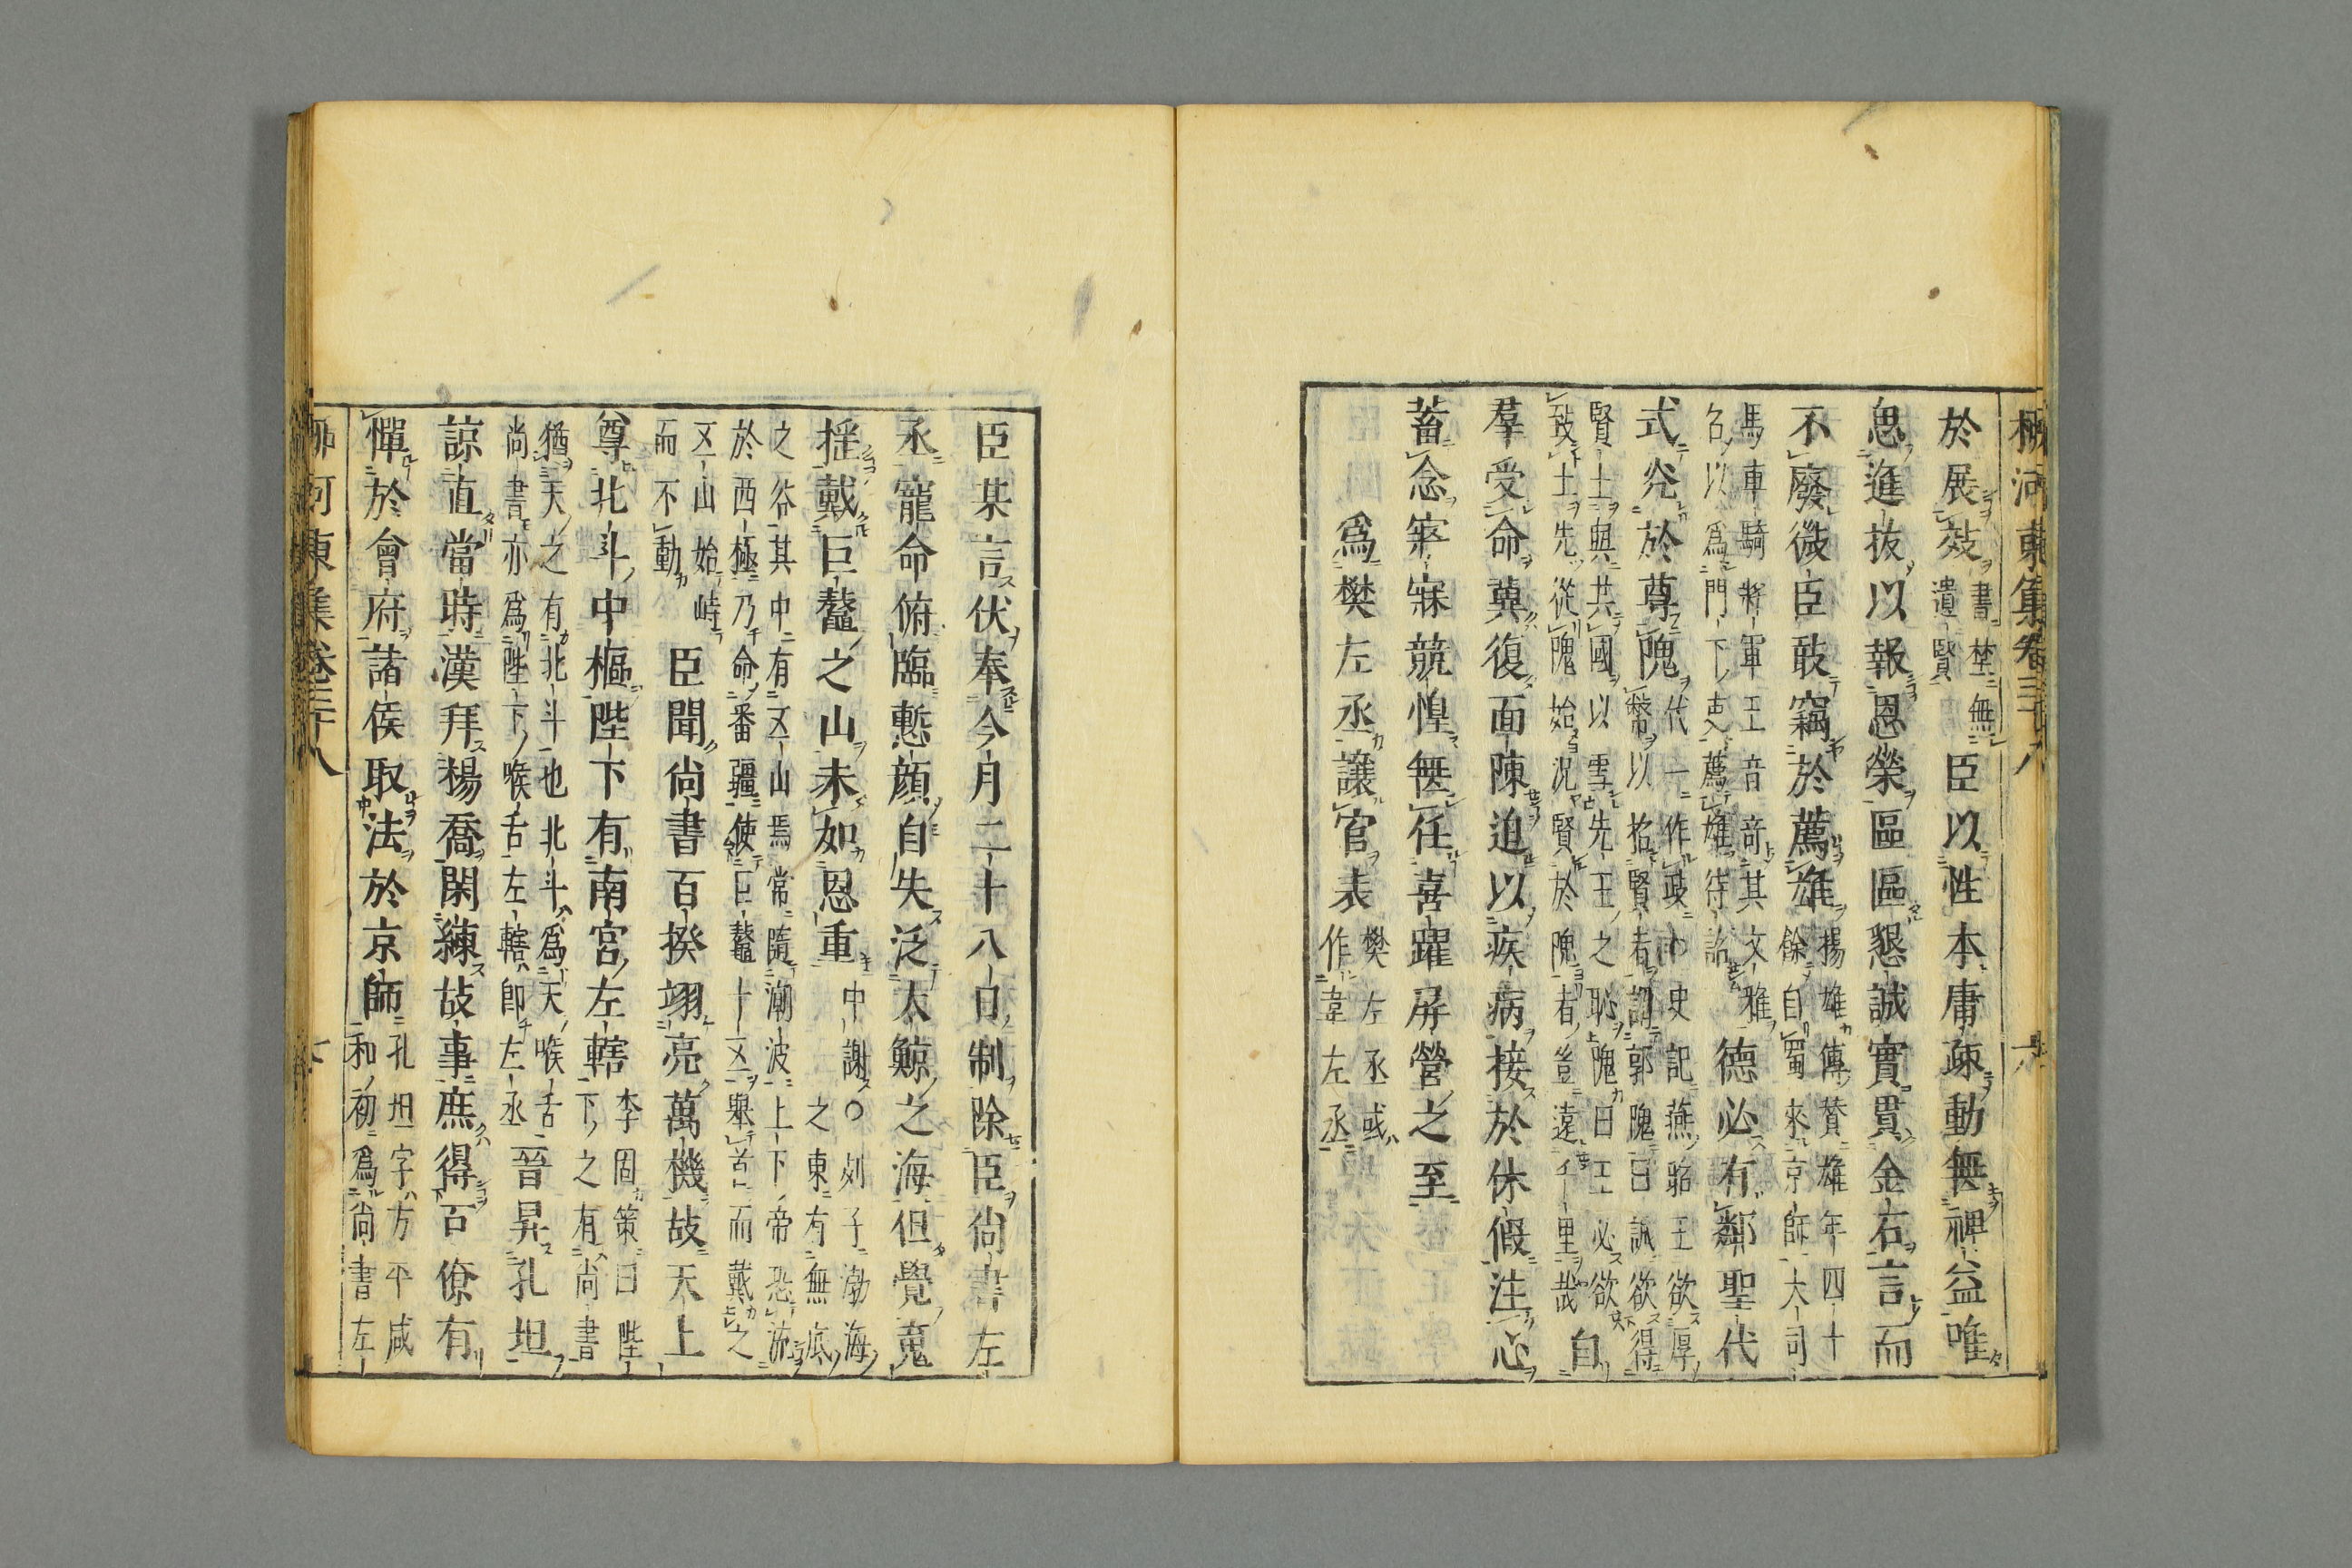 於展效書埜無遺賢臣以性本庸疎動無裨益唯
思進拔以報恩榮區區懇誠實貫金石言而
不廢微臣敢竊於薦雄揚雄傳贊雄年四十餘自蜀來京師大司
馬車騎將軍王音奇其文雅召以爲門下吏薦雄待詔德必有鄰聖代
式光於尊隗代一作政史記燕昭王欲厚幣以招賢者謂郭隗曰誠欲得
賢士與共國以雪先王之恥隗曰王必欲致士先從隗始況賢於隗者豈遠千里哉自
羣受命冀復面陳迫以疾病接於休假注心
蓄念寤寐競惶無任喜躍屏營之至
爲樊左丞讓官表樊左丞或作韋左丞
臣某言伏奉今月二十八日制除臣尚書左
丞寵命俯臨慙顔自失泛大鯨之海但覺䰟
搖戴巨鼇之山未如恩重中謝○列子渤海之東有無底
之谷其中有五山焉常隨潮波上下帝恐流於西極乃命番疆使巨鼇十五舉首而戴之
五山始峙而不動臣聞尚書百揆翊亮萬機故天上
尊北斗中樞陛下有南宮左轄李固策曰陛下之有尚書
猶天之有北斗也北斗爲天喉舌尚書亦爲陛下喉舌左轄即左丞晉昇孔坦
諒直當時漢拜楊喬閑練故事庶得百僚有
憚於會府諸侯取法於京師孔坦字方平咸和初爲尚書左
柳河東集卷三十八